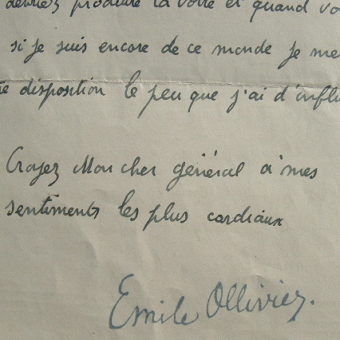 devriez produire la vôtre et quand vo
si je suis encore de ce monde je me
disposition le peu que j'ai d'influ
Croyez Mon cher général à mes
sentiments les plus cordiaux
Emile Ollivier.